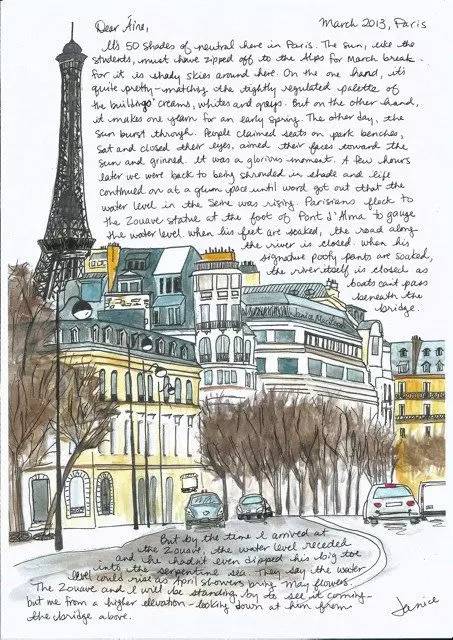 Dear Áine,
March 2013, Paris
It's 50 shades of neutral here in Paris. The sun, like the
students, must have zipped off to the Alps for March break.
For it is shady skies around here. On the one hand, it's
quite pretty-matching the tightly regulated palette of
the buildings' creams, whites and grays. But on the other hand,
it makes one yearn for an early spring. The other day, the
sun burst through. People claimed seats on park benches,
sat and closed their eyes, aimed their faces toward the
sun and grinned. It was a glorious moment. A few hours
later we were back to being shrouded in shade and life
continued on at a glum pace until word got out that the
water level in the Seine was rising. Parisians flock to
the Zouave statue at the foot of Pont d'Alma to gauge
the water level. When his feet are soaked, the road along
the river is closed. When his
signature poofy pants are soaked,
the river itself is closed as
boats can't pass
beneath the
bridge.
Janice MacLeod
But by the time I arrived at
the Zouave, the water level receded
and he hadn't even dipped his big toe
into the serpentine sea. They say the water
level could rise as April showers bring May flowers.
The Zouave and I will be standing by to see it coming-
but me from a higher elevation-looking down at him from
the bridge above.
Janice